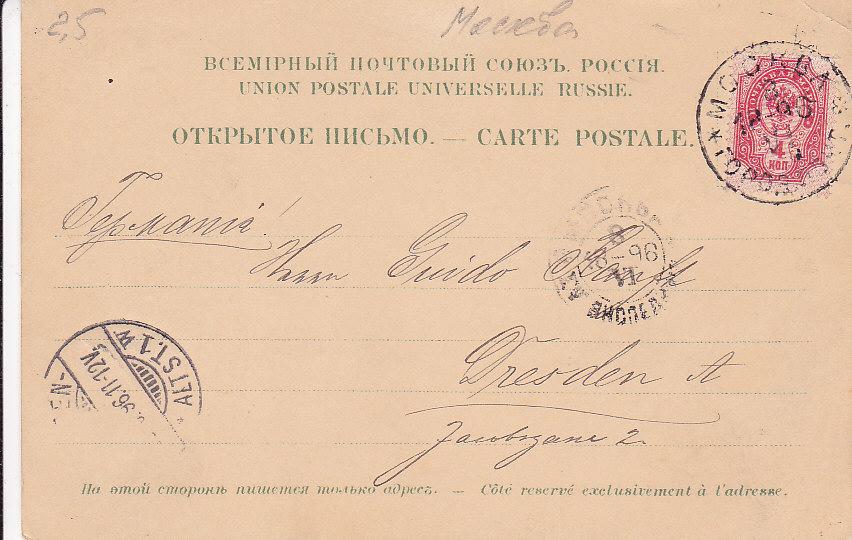 2,5 Москва
ВСЕМІРНЫЙ ПОЧТОВЫЙ СОЮЗЪ. РОССІЯ.
UNION POSTALE UNIVERSELLE RUSSIE.
ОТКРЫТОЕ ПИСЬМО. — CARTE POSTALE.
МОСКВА
ПОЧТОВАЯ МАРКА
4
КОП
Германія!
Herrn Guido
Dresden A
2
ALTST. 1 W
96.11-12V
На этой сторонѣ пишется только адресъ. — Côté reservé exclusivement à l'adresse.